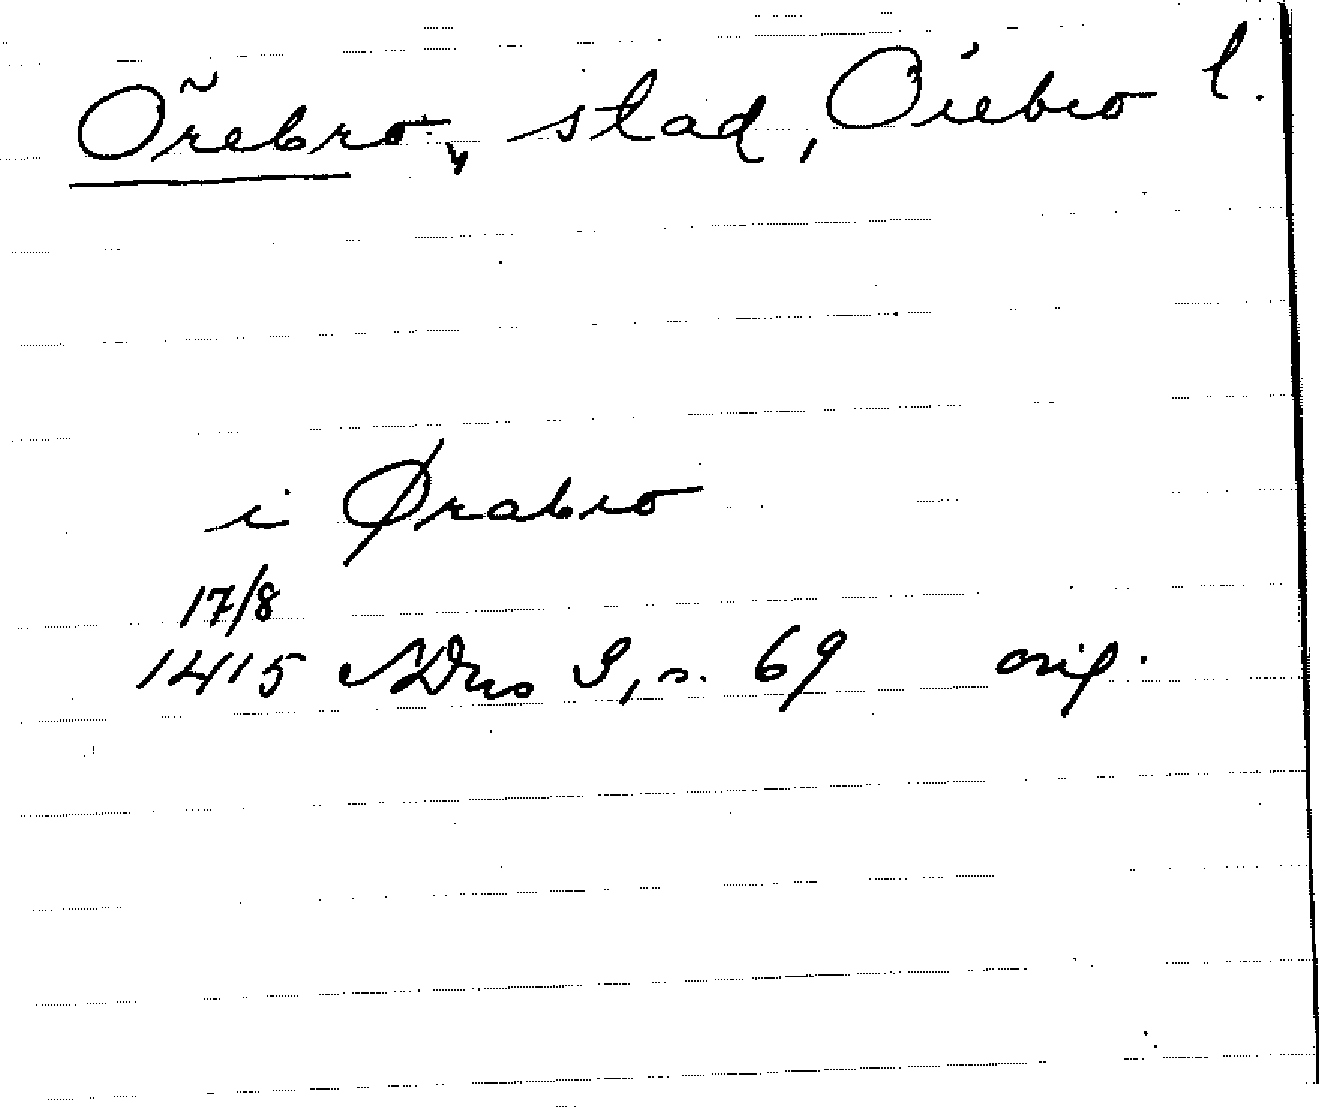 Örebro, stad, Örebro l.
i Ørabro
17/8
1415 SDns I, s. 69 orig.